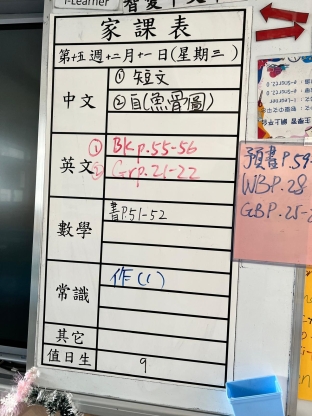 i-Learner
家課表
第十五週十二月十一日(星期三)
中文
① 短文
② 自(魚骨圖)
英文
① Bk p.55-56
② Gr p.21-22
數學
書P.51-52
常識
作(1)
其它
值日生
9
預書P.59-
WBP.28
GBP.25-2